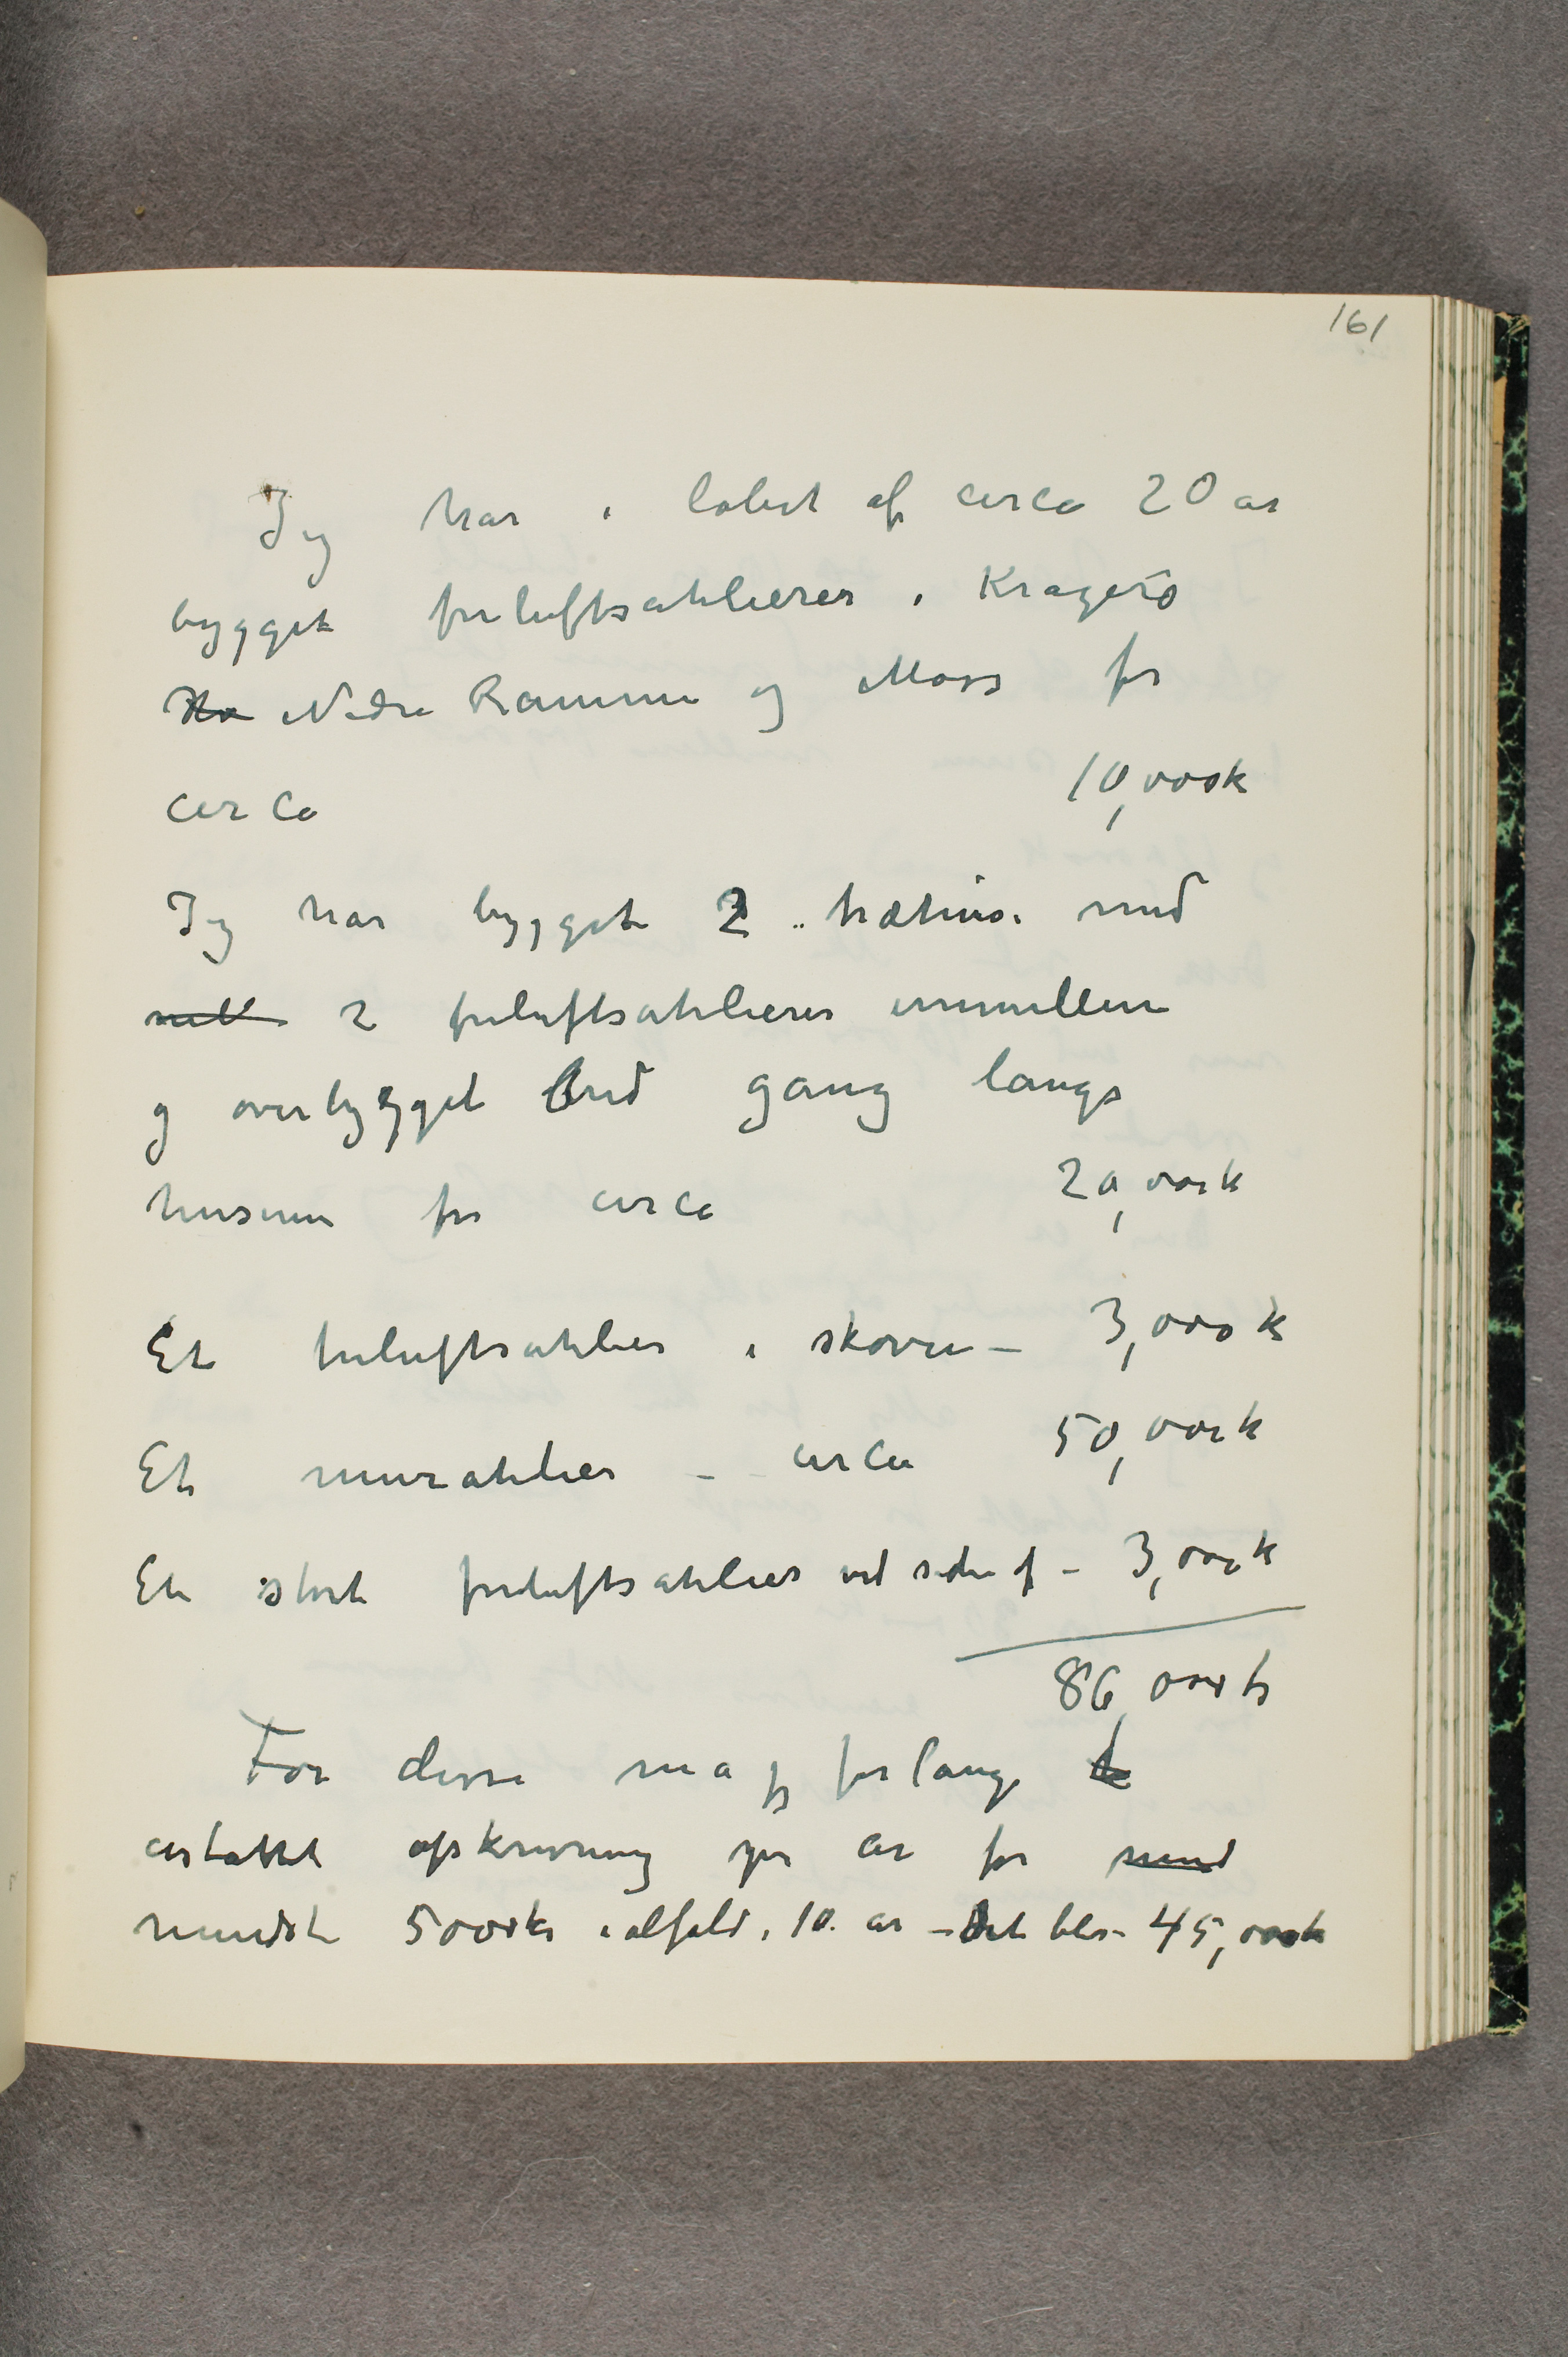 161
Jeg har i løbet af circa 20 år
bygget friluftsatelierer i Kragerø
Nedre Ramme og Moss for
circa 10,000k
Jeg har bygget 2 træhuse med
mell 2 friluftsatelierer imellem
og overbygget bred gang langs
husene for circa 20,000k
Et friluftsatelier i skoven – 3,000k
Et muratelier – circa 50,000k
Et stort friluftsatelier ved siden af – 3,000k
86,000k
For disse må jeg forlange
erstattet afskrivning pr år for mind
mindst 5000kr ialfald i 10 år – det blir 45,000k